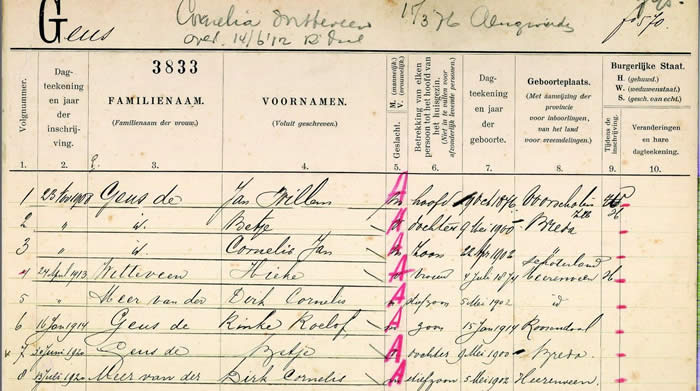 Geus
Cornelia
over. 14/6'12
f 570.
3833
Volgnummer.
Dag-
teekening
en jaar
der
inschrij-
ving.
FAMILIENAAM.
(Familienaam der vrouw.)
VOORNAMEN.
(Voluit geschreven.)
Geslacht.
M. (mannelijk.)
V. (vrouwelijk.)
Betrekking van elken
persoon tot het hoofd van
het huisgezin.
(Niet in te vullen voor
afzonderlijk levende personen.)
Dag-
teekening
en jaar
der
geboorte.
Geboorteplaats.
(Met aanwijzing der
provincie
voor inboorlingen,
van het land
voor vreemdelingen.)
Burgerlijke Staat.
H. (gehuwd.)
W. (weduwenstaat.)
S. (gesch. van echt.)
Tijdens de
inschrijving.
Veranderingen
en hare
dagteekening.
1. 2. 3. 4. 5. 6. 7. 8. 9. 10.
1 Geus de Jan Willem hoofd 1876 Voorschoten
2 " id. Betje dochter 9 Mei 1900 Breda
3 " id. Cornelis Jan Zoon 22 Apr 1902
4 24 April 1913 Witteveen Hieke vrouw 4 Juli 1874 Heerenveen H
5 " Meer van der Dirk Cornelis stiefzoon 5 Mei 1902 id
6 16 Jan 1914 Geus de Rinke Roelof zoon 15 Jan 1914 Roosendaal
7 Juni 1920 Geus de Betje dochter 9 Mei 1900 Breda
8 Juli 1920 Meer van der Dirk Cornelis stiefzoon 5 Mei 1902 Heerenveen